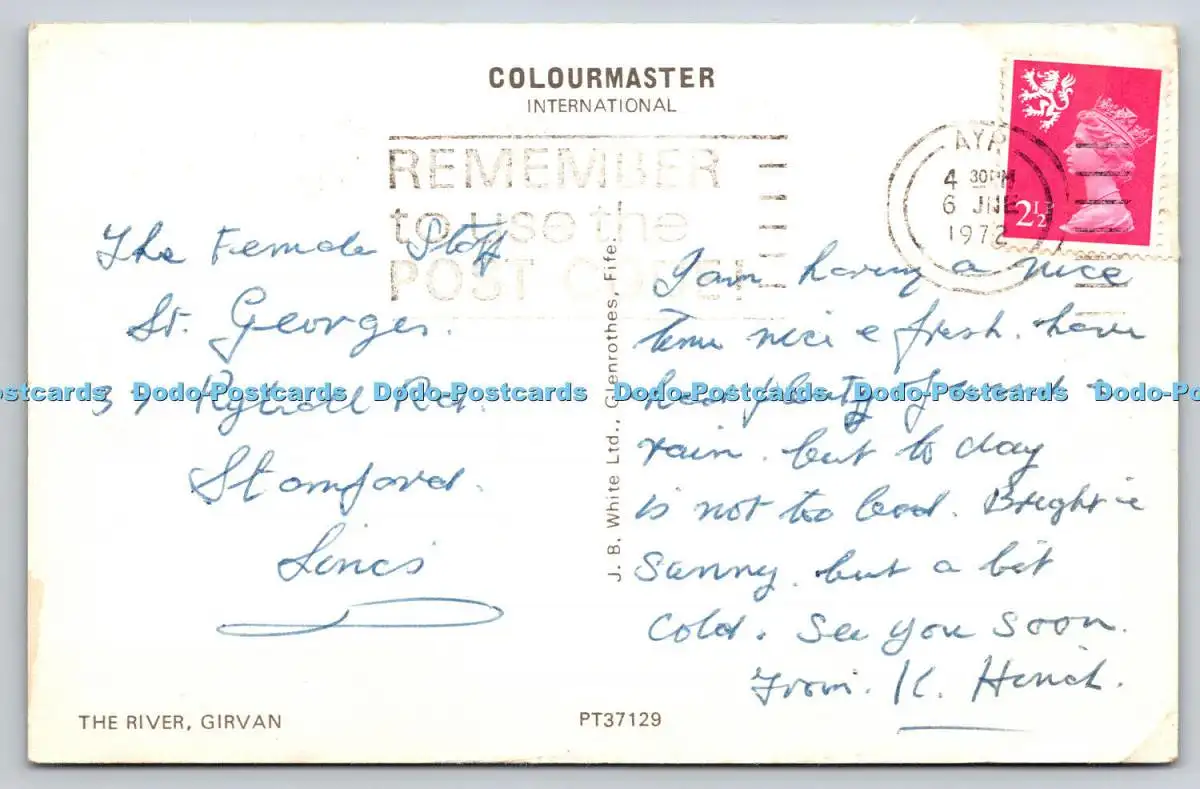 COLOURMASTER
INTERNATIONAL
REMEMBER
to use the
POST CODE!
AYR
4 30PM
6 JNE
1972
2½
The Female Staff
St. Georges.
Ryhall Rd.
Stamford.
Lincs
I am having a nice
time nice & fresh. have
had plenty of wind &
rain. but to day
is not too bad. Bright &
Sunny. but a bit
Cold. See you soon.
From. K. Hinch.
J. B. White Ltd., Glenrothes, Fife.
THE RIVER, GIRVAN
PT37129
Dodo-Postcards Dodo-Postcards Dodo-Postcards Dodo-Postcards